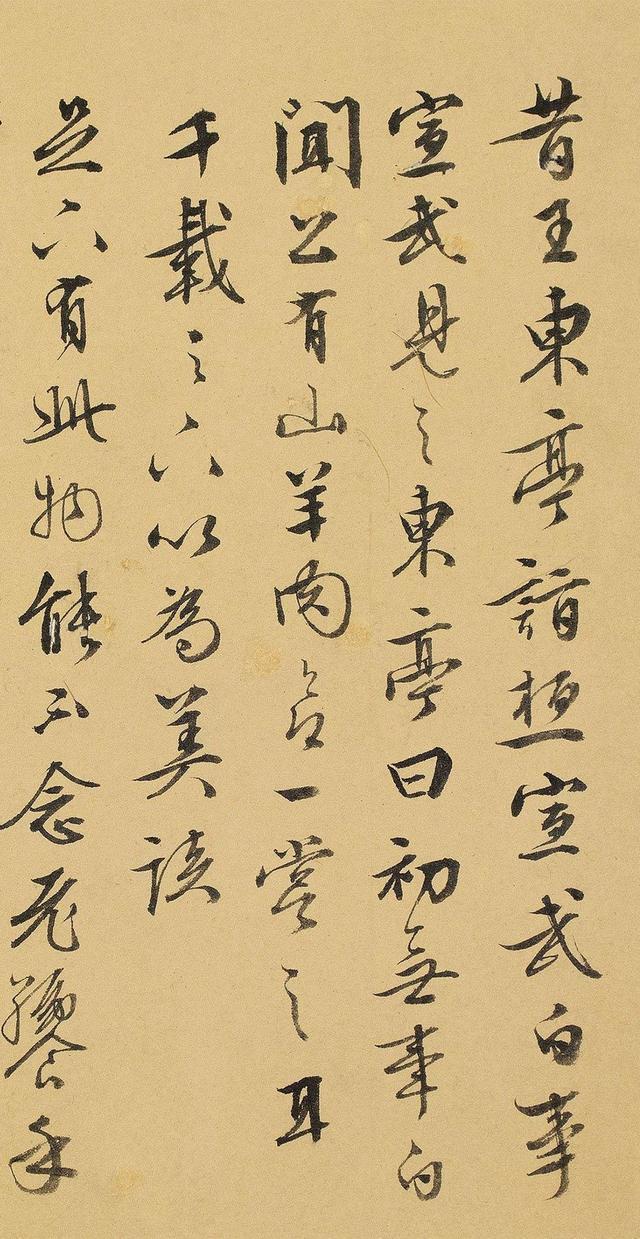 昔王東亭詣桓宣武白事
宣武見之東亭曰初無事白
聞公有山羊肉一嘗之耳
千載之下以為美談
足下有此物能不念老饕乎